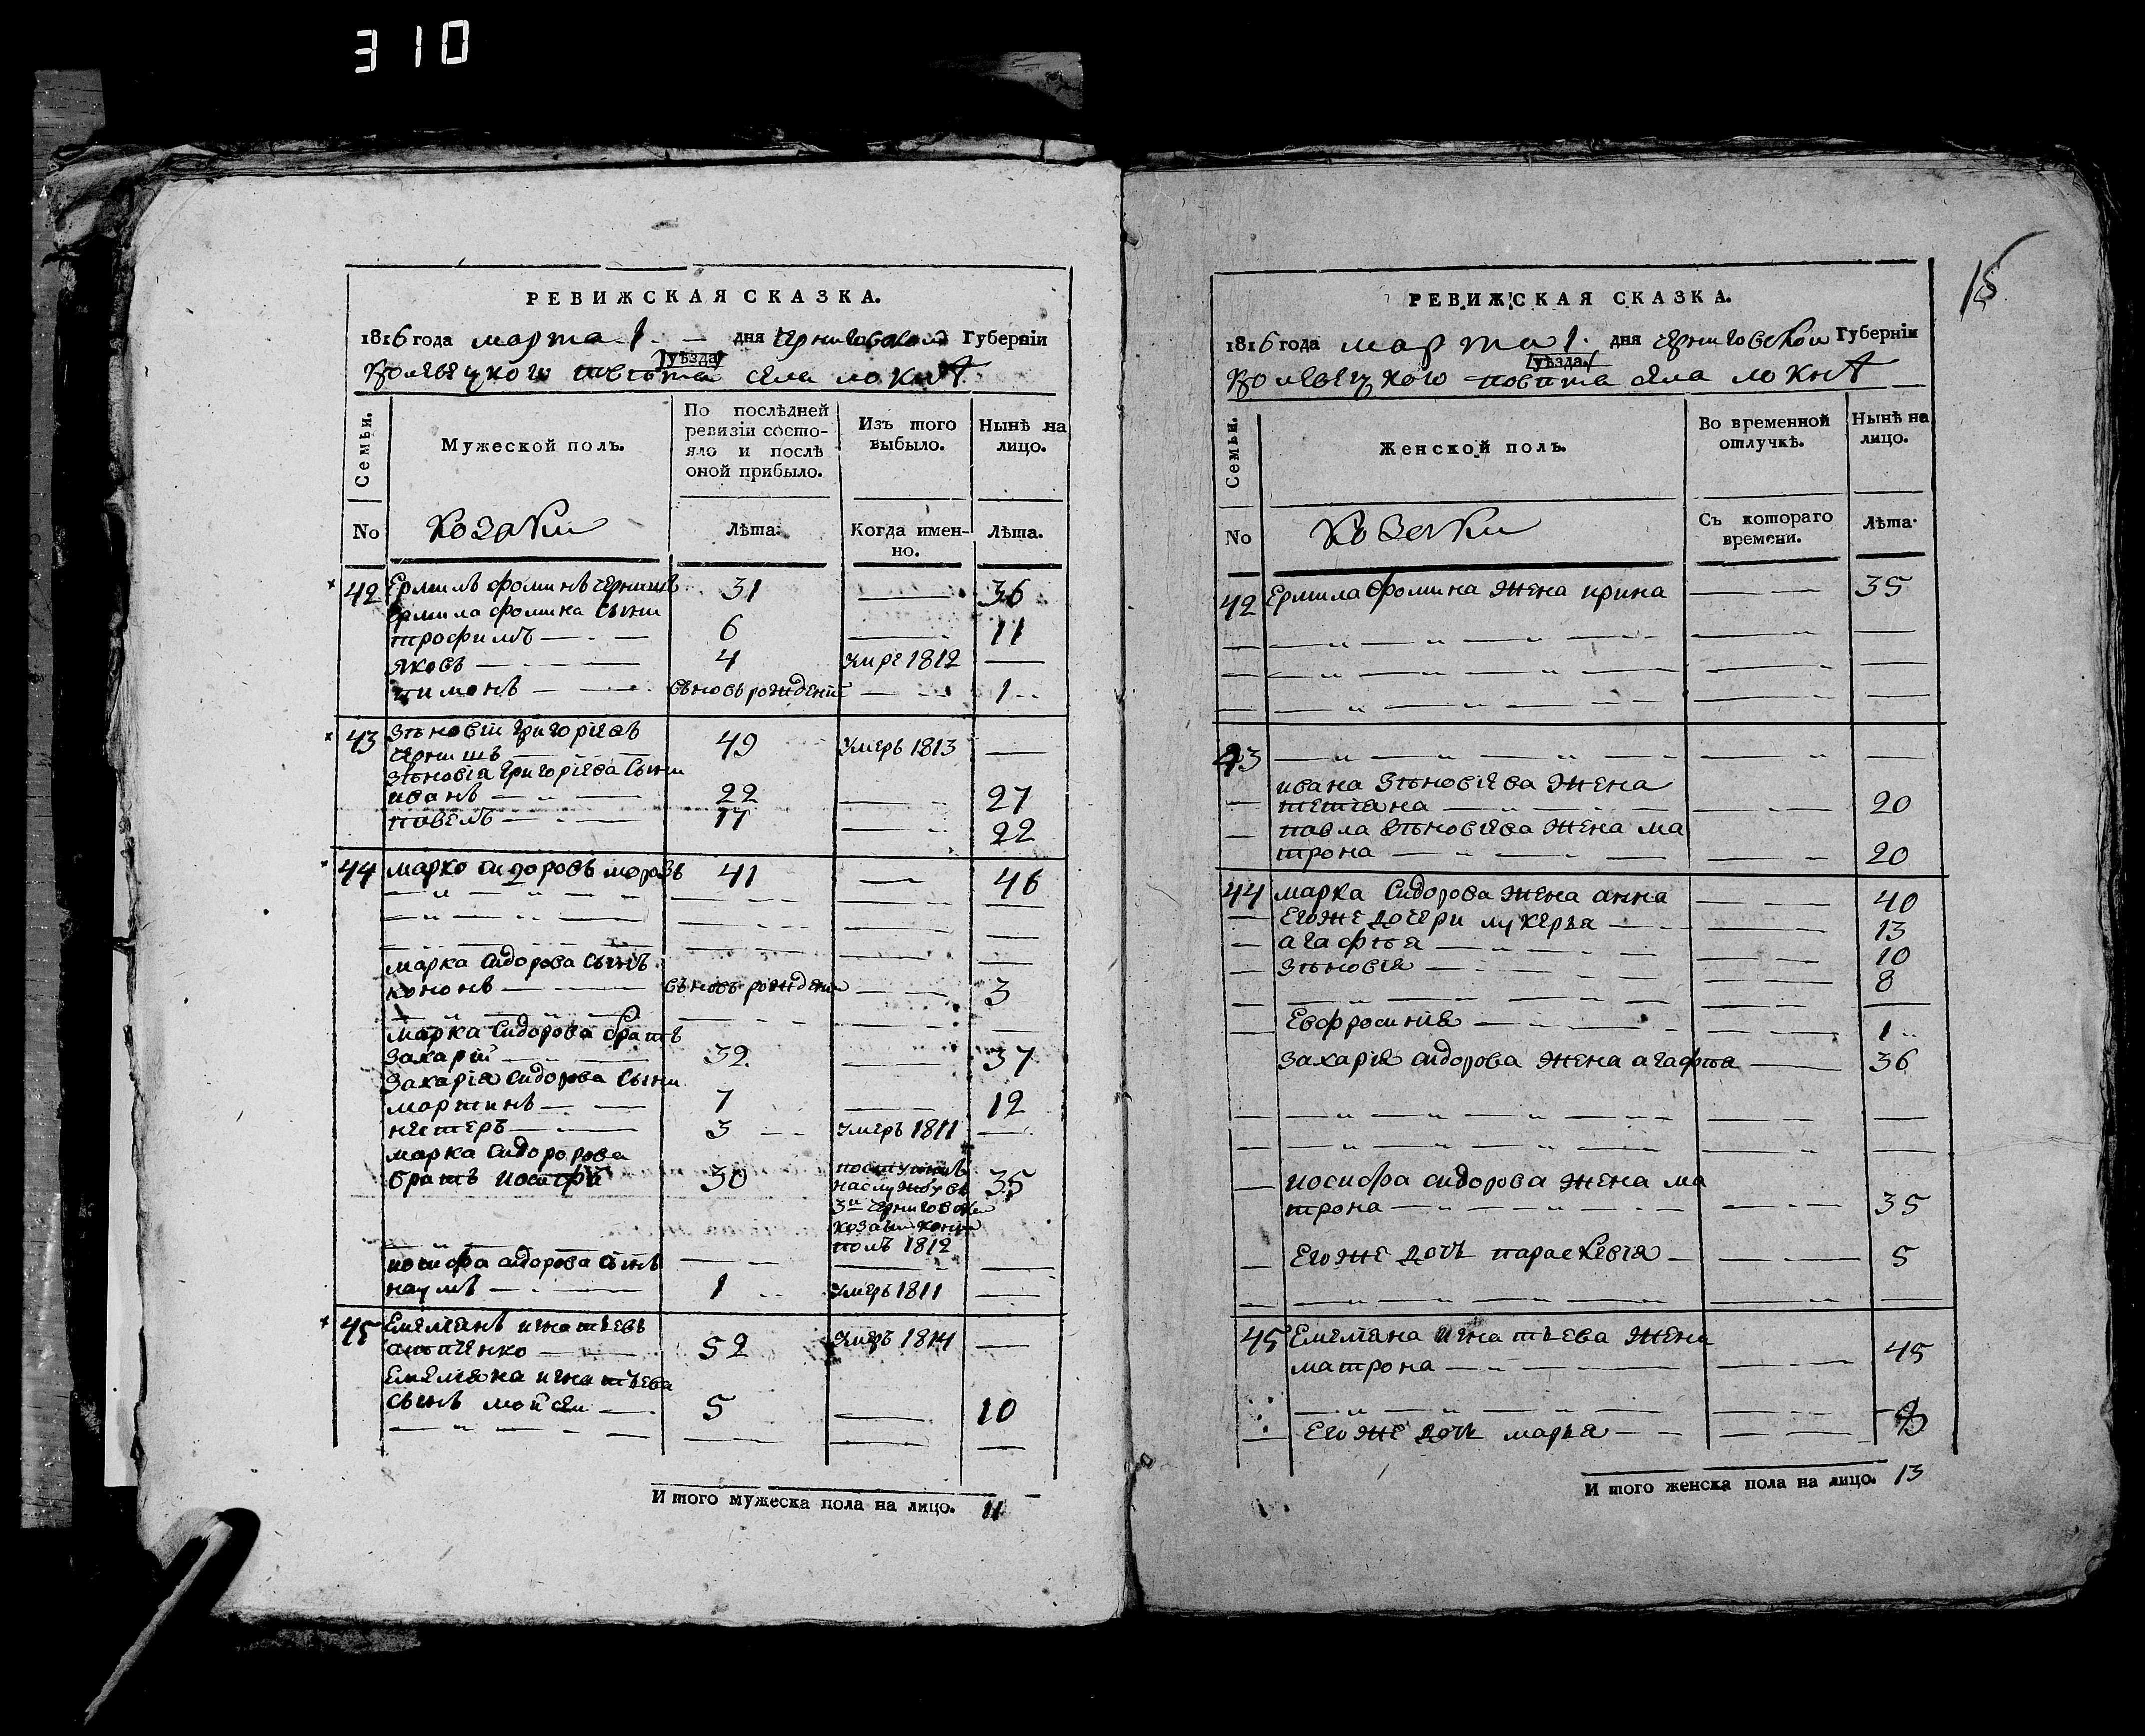 310
РЕВИЖСКАЯ СКАЗКА.
1816 года марта 1. дня Черниговской Губерніи
уѣзда
Коневецкого повѣта села локнѣ
Семьи.
Мужеской полъ.
По послѣдней ревизіи состо-
яло и послѣ оной прибыло.
Изъ того выбыло.
Нынѣ на лицо.
No
козаки
Лѣта.
Когда имен-
но.
Лѣта.
42 Ермилъ фоминъ чернишъ 31 36
Ермила фомина сыни
трофимъ 6 11
яковъ 4 умре 1812
пимонъ вновь рожденъ 1
43 Зѣновій григоріевъ
чернишъ 49 умеръ 1813
Зѣновія григоріева сыни
иванъ 22 27
павелъ 17 22
44 марко сидоровъ морозъ 41 46
марка сидорова сынъ
кононъ вновь рожденъ 3
марка сидорова братъ
захарій 32 37
захарія сидорова сыни
мартинъ 7 12
нестеръ 3 умеръ 1811
марка сидоророва
братъ иосифъ 30 поступилъ 35
на службу въ
3й черниговски
козачи конни
полъ 1812
иосифа сидорова сынъ
наумъ 1 умеръ 1811
45 Емелянъ игнатьевъ
52 умеръ 1814
Емеляна игнатьева
сынъ мойсей 5 10
И того мужеска пола на лицо. 11
15
РЕВИЖСКАЯ СКАЗКА.
1816 года марта 1. дня черниговской Губерніи
уѣзда
Коневецкого повѣта села локнѣ
Семьи.
Женской полъ.
Во временной отлучкѣ.
Нынѣ на лицо.
No
козачки
Съ котораго времени.
Лѣта.
42 Ермила фомина жена ирина 35
43
ивана зѣновіева жена
тетіана 20
павла зѣновіева жена ма
трона 20
44 марка сидорова жена анна 40
его же дочери лукерья 13
агафѣя 10
зѣновія 8
Евфросинія 1
захарія сидорова жена агафѣя 36
иосифа сидорова жена ма
трона 35
его же дочь параскевія 5
45 Емеляна игнатьева жена
матрона 45
его же дочь марья
И того женска пола на лицо. 13